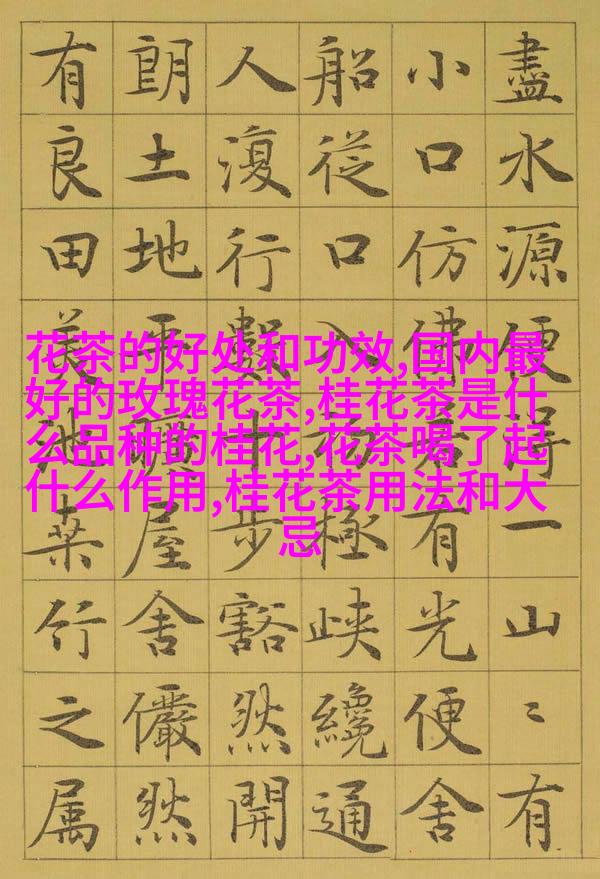 盡水源便得一山〻有
小口仿佛若有光便舍
船從口入初極峽纔通
人復行數十步豁然開
朗土地平曠屋舍儼然
有良田美池桑竹之属
花茶的好处和功效,国内最
好的玫瑰花茶,桂花茶是什
么品种的桂花,花茶喝了起
什么作用,桂花茶用法和大
忌